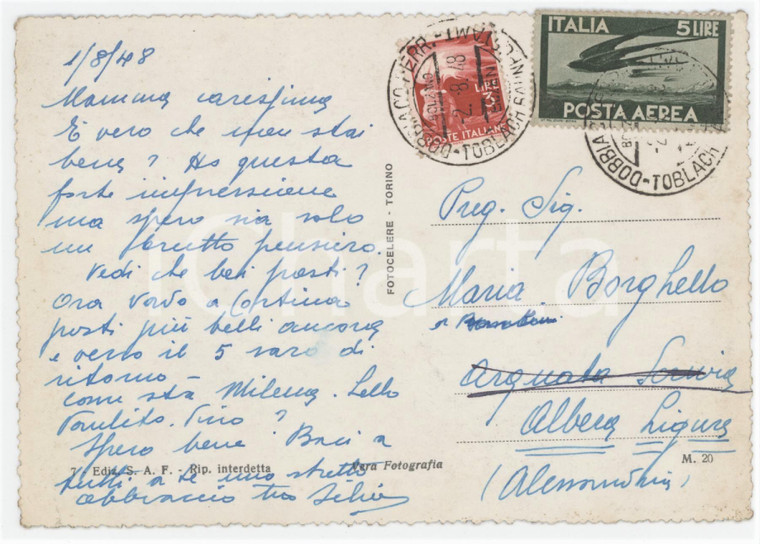 1/8/48
Mamma carissima
È vero che non stai
bene? Ho questa
forte impressione
ma spero sia solo
un brutto pensiero.
Vedi che bei posti?
Ora vado a Cortina
posti più belli ancora
e verso il 5 sarò di
ritorno -
come sta Milena. Lello
Pino?
Spero bene. Baci a
tutti a te uno stretto
abbraccio tuo Silvio
7 - Ediz. S. A. F. - Rip. interdetta
Vera Fotografia
M. 20
FOTOCELERE - TORINO
LIRE 3
POSTE ITALIANE
DOBBIACO - TOBLACH
2. 8. 48
ITALIA 5 LIRE
POSTA AEREA
DOBBIACO - TOBLACH
Preg. Sig.
Maria Borghello
Arquata Scrivia
Albera Ligure
(Alessandria)
iCharta